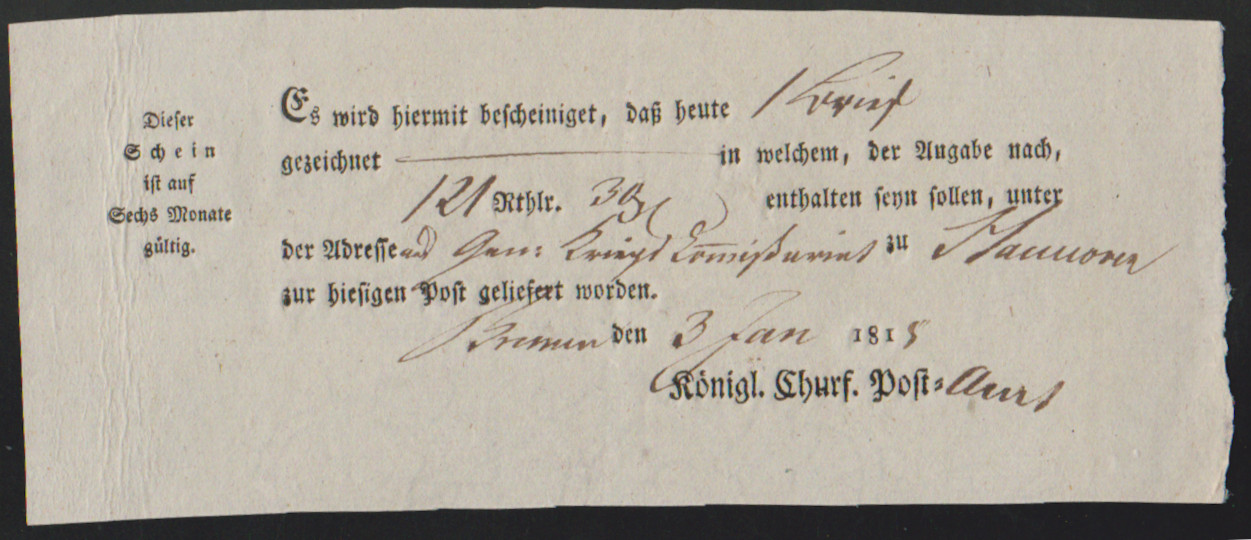 Dieser
Schein
ist auf
Sechs Monate
gültig.
Es wird hiermit bescheiniget, daß heute 1 Brief
gezeichnet in welchem, der Angabe nach,
121 Rthlr. enthalten seyn sollen, unter
der Adresse Gen: Kriegs Commissariat zu Hannover
zur hiesigen Post geliefert worden.
Bremen den 3 Jan 181
Königl. Churf. Post-Amt